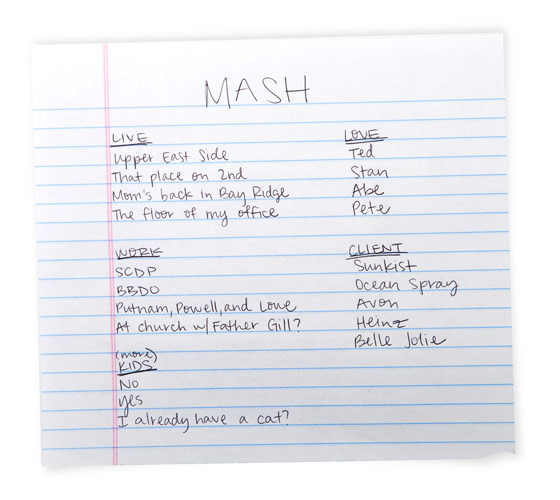 MASH
LIVE
Upper East Side
That place on 2nd
Mom's back in Bay Ridge
The floor of my office
LOVE
Ted
Stan
Abe
Pete
WORK
SCDP
BBDO
Putnam, Powell, and Lowe
At church w/Father Gill?
CLIENT
Sunkist
Ocean Spray
Avon
Heinz
Belle Jolie
(more)
KIDS
No
yes
I already have a cat?